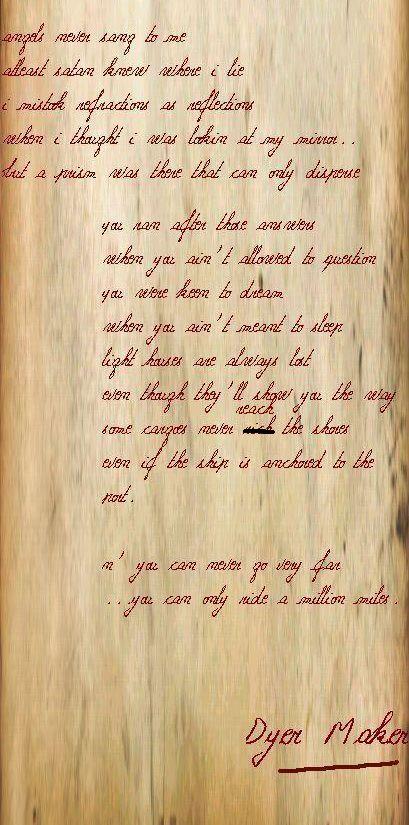 angels never sang to me
atleast satan knew where i lie
i mistook refractions as reflections
when i thought i was lookin at my mirror..
but a prism was there that can only disperse
you ran after those answers
when you ain't allowed to question
you were keen to dream
when you ain't meant to sleep
light houses are always lost
even though they'll show you the way
some cargoes never reach the shores
even if the ship is anchored to the
port.
n' you can never go very far
...you can only ride a million miles.
Dyer Maker